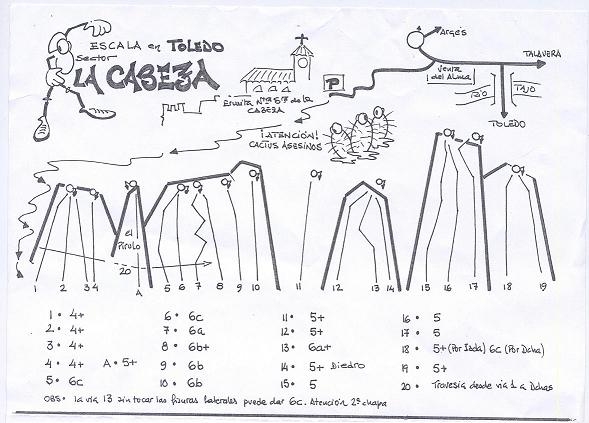 ESCALA en TOLEDO
Sector
LA CABEZA
Ermita Nª Sª de la
CABEZA
P
Argés
TALAVERA
Venta
del Alma
Río
TAJO
TOLEDO
¡ATENCIÓN!
CACTUS ASESINOS
el
Pirulo
20
1 2 3 4 A 5 6 7 8 9 10 11 12 13 14 15 16 17 18 19
1• 4+
2• 4+
3• 4+
4• 4+ A• 5+
5• 6c
6• 6c
7• 6a
8• 6b+
9• 6b
10• 6b
11• 5+
12• 5+
13• 6a+
14• 5+ Diedro
15• 5
16• 5
17• 5
18• 5+ (Por Izda) 6c (Por Dcha)
19• 5+
20• Travesía desde vía 1 a Dchas
OBS• la vía 13 sin tocar las fisuras laterales puede dar 6c. Atención 2ª chapa